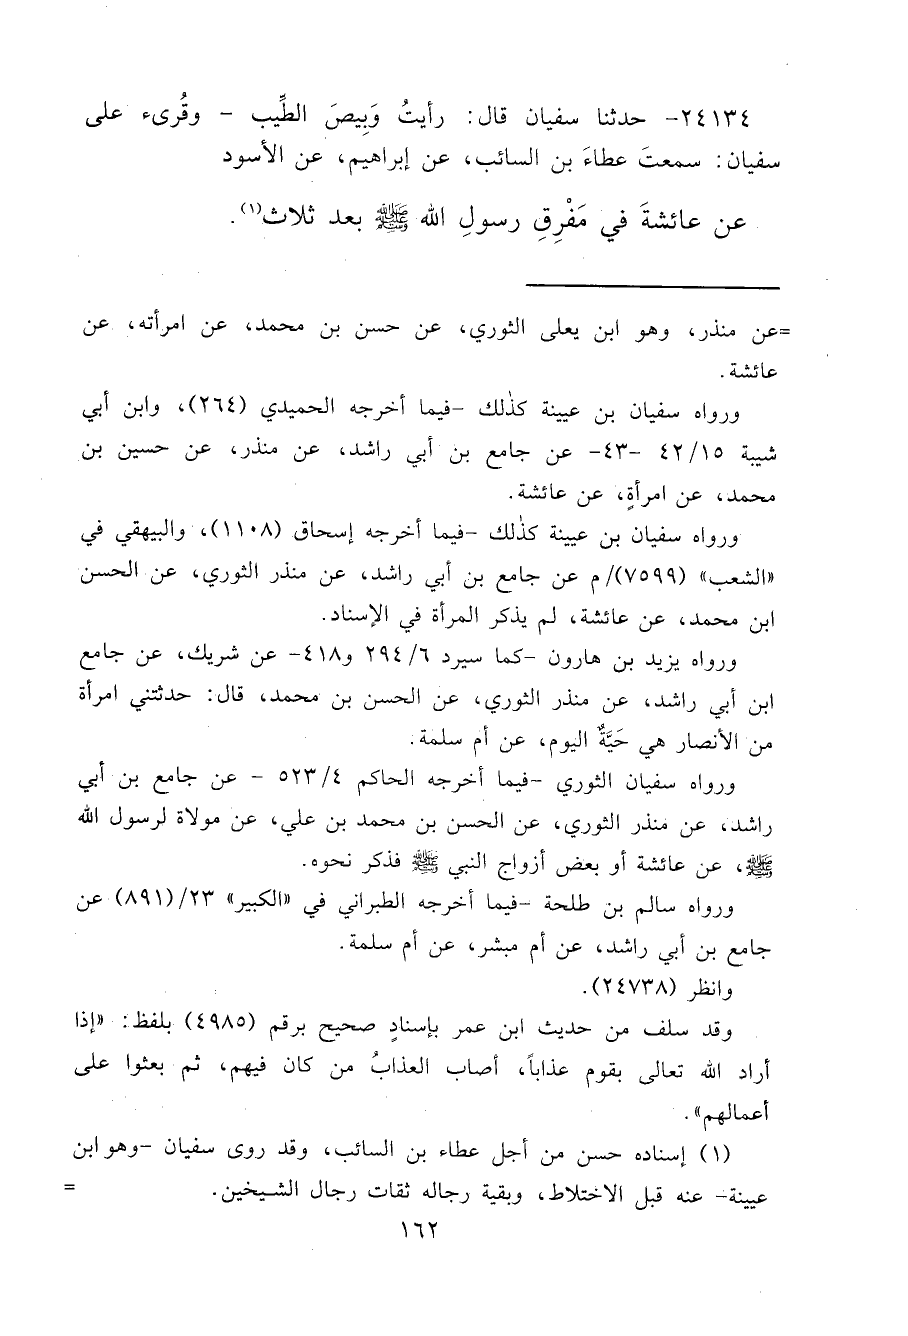 ٢٤١٣٤- حدثنا سفيان قال: رأيتُ وَبِيصَ الطِّيب - وقُرىء على
سفيان: سمعتَ عطاءَ بن السائب، عن إبراهيم، عن الأسود
عن عائشةَ في مَفْرِقِ رسولِ الله ﷺ بعد ثلاث(١).
=عن منذر، وهو ابن يعلى الثوري، عن حسن بن محمد، عن امرأته، عن
عائشة.
ورواه سفيان بن عيينة كذٰلك -فيما أخرجه الحميدي (٢٦٤)، وابن أبي
شيبة ٤٢/١٥ -٤٣- عن جامع بن أبي راشد، عن منذر، عن حسين بن
محمد، عن امرأةٍ، عن عائشة.
ورواه سفيان بن عيينة كذٰلك -فيما أخرجه إسحاق (١١٠٨)، والبيهقي في
«الشعب» (٧٥٩٩)/م عن جامع بن أبي راشد، عن منذر الثوري، عن الحسن
ابن محمد، عن عائشة، لم يذكر المرأة في الإسناد.
ورواه يزيد بن هارون -كما سيرد ٢٩٤/٦ و٤١٨- عن شريك، عن جامع
ابن أبي راشد، عن منذر الثوري، عن الحسن بن محمد، قال: حدثتني امرأة
من الأنصار هي حَيَّةٌ اليوم، عن أم سلمة.
ورواه سفيان الثوري -فيما أخرجه الحاكم ٥٢٣/٤ - عن جامع بن أبي
راشد، عن منذر الثوري، عن الحسن بن محمد بن علي، عن مولاة لرسول الله
ﷺ، عن عائشة أو بعض أزواج النبي ﷺ فذكر نحوه.
ورواه سالم بن طلحة -فيما أخرجه الطبراني في «الكبير» ٢٣/(٨٩١) عن
جامع بن أبي راشد، عن أم مبشر، عن أم سلمة.
وانظر (٢٤٧٣٨).
وقد سلف من حديث ابن عمر بإسنادٍ صحيح برقم (٤٩٨٥) بلفظ: «إذا
أراد الله تعالى بقوم عذاباً، أصاب العذابُ من كان فيهم، ثم بعثوا على
أعمالهم».
(١) إسناده حسن من أجل عطاء بن السائب، وقد روى سفيان -وهو ابن
عيينة- عنه قبل الاختلاط، وبقية رجاله ثقات رجال الشيخين. =
١٦٢